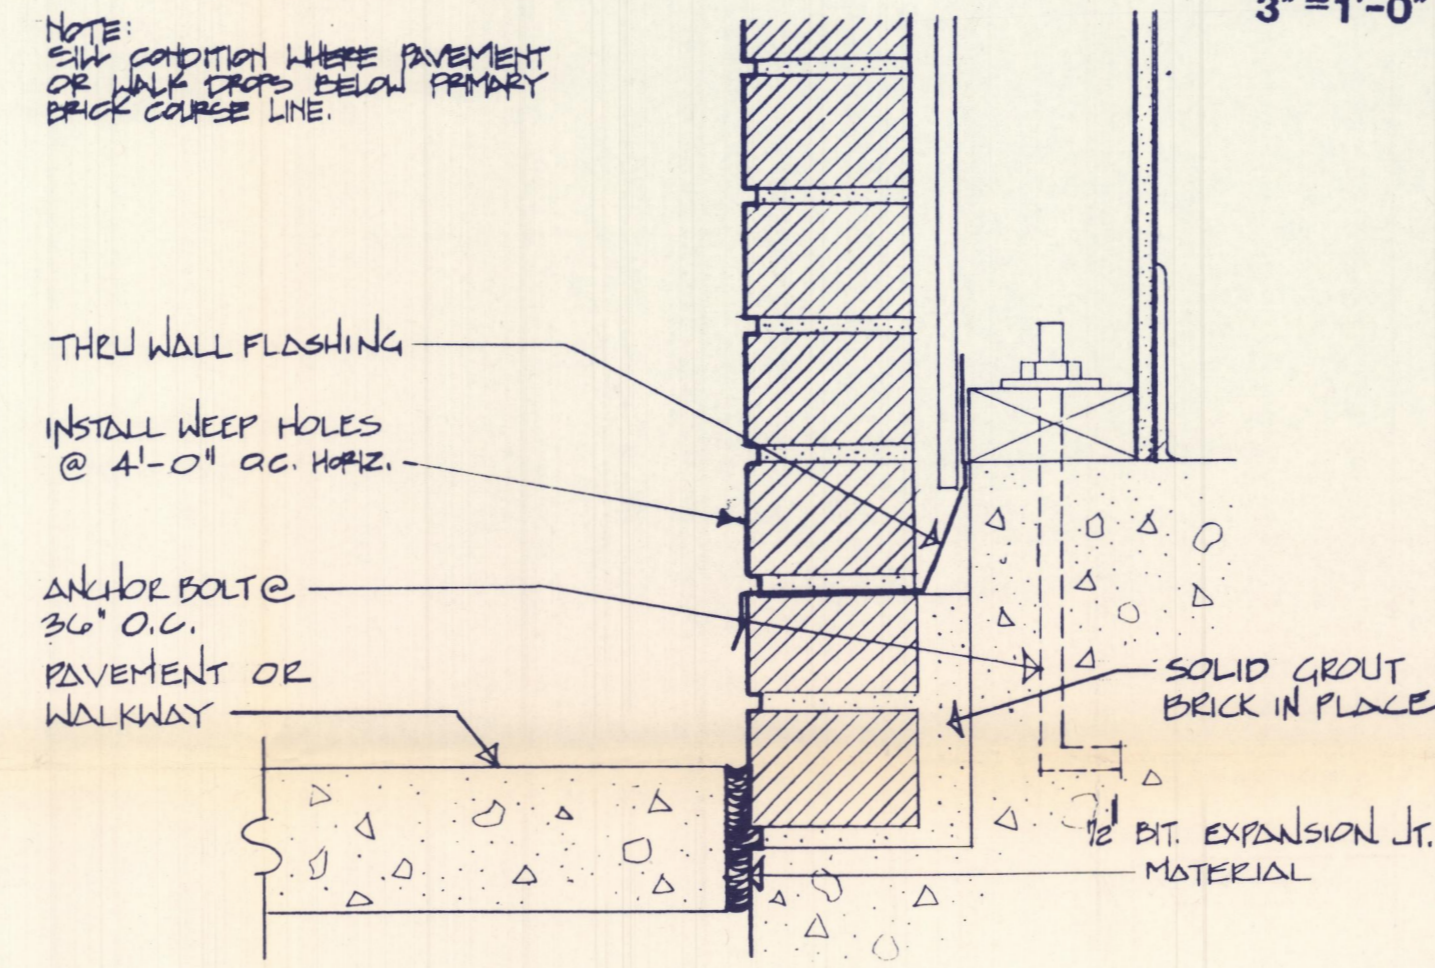 3" = 1'-0"
NOTE:
SILL CONDITION WHERE PAVEMENT
OR WALK DROPS BELOW PRIMARY
BRICK COURSE LINE.
THRU WALL FLASHING
INSTALL WEEP HOLES
@ 4'-0" O.C. HORIZ.
ANCHOR BOLT @
36" O.C.
PAVEMENT OR
WALKWAY
SOLID GROUT
BRICK IN PLACE
1/2" BIT. EXPANSION JT.
MATERIAL